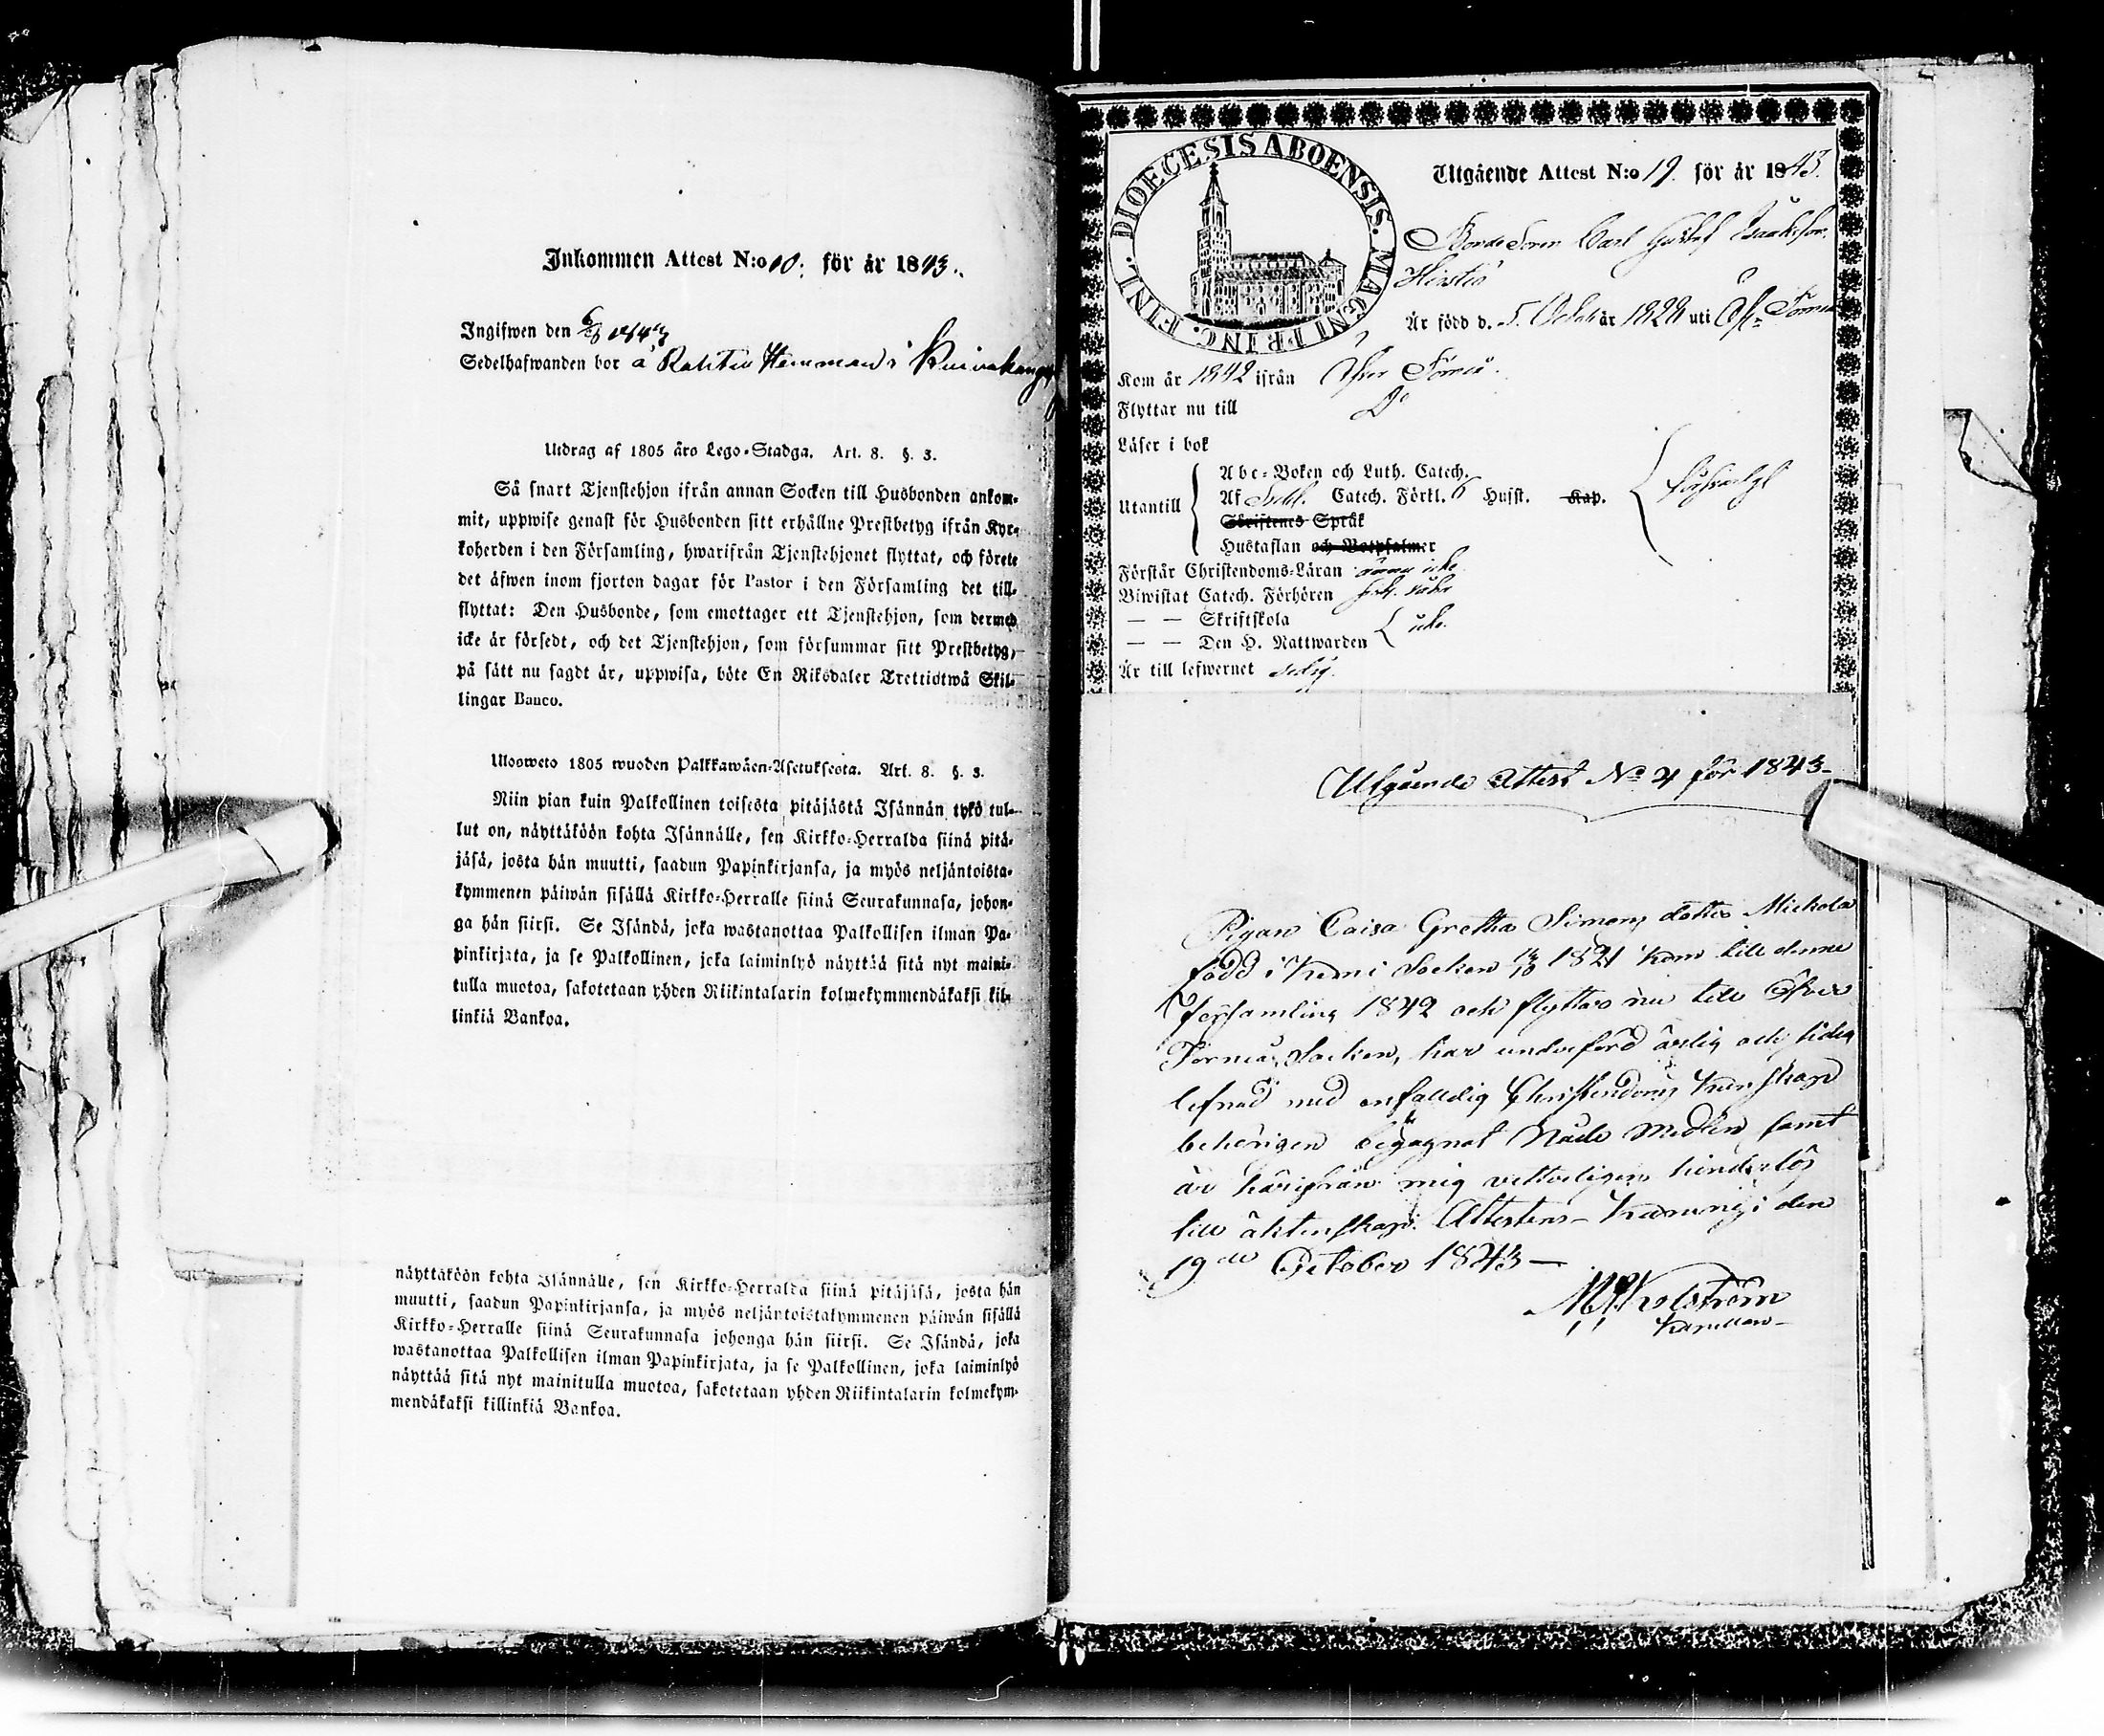 Inkommen Attest N:o 10. för år 1843.
Ingifwen den
Sedelhafwanden bor å Rahtio Hemman i Kuivakangas
Utdrag af 1805 års Lego-Stadga. Art. 8. §. 3.
Så snart Tjenstehjon ifrån annan Socken till Husbonden ankom-
mit, uppwise genast för Husbonden sitt erhållne Prestbetyg ifrån Kyr-
koherden i den Församling, hwarifrån Tjenstehjonet flyttat, och förete
det äfwen inom fjorton dagar för Pastor i den Församling det till-
flyttat: Den Husbonde, som emottager ett Tjenstehjon, som dermed
icke är försedt, och det Tjenstehjon, som försummar sitt Prestbetyg,
på sätt nu sagdt är, uppwisa, böte En Riksdaler Trettiotwå Skil-
lingar Banco.
Ulosweto 1805 wuoden Palkkawäen-Asetuksesta. Art. 8. §. 3.
Niin pian kuin Palkollinen toisesta pitäjästä Isännän tykö tul-
lut on, näyttäköön kohta Isännälle, sen Kirkko-Herralda siinä pitä-
jäsä, josta hän muutti, saadun Papinkirjansa, ja myös neljäntoista-
kymmenen päiwän sisällä Kirkko-Herralle siinä Seurakunnasa, johon-
ga hän siirsi. Se Isändä, joka wastanottaa Palkollisen ilman Pa-
pinkirjata, ja se Palkollinen, joka laiminlyö näyttää sitä nyt maini-
tulla muotoa, sakotetaan yhden Riikintalarin kolmekymmendäkaksi kil-
linkiä Bankoa.
näyttäköön kohta Isännälle, sen Kirkko-Herralda siinä pitäjäsä, josta hän
muutti, saadun Papinkirjansa, ja myös neljäntoistakymmenen päiwän sisällä
Kirkko-Herralle siinä Seurakunnasa johonga hän siirsi. Se Isändä, joka
wastanottaa Palkollisen ilman Papinkirjata, ja se Palkollinen, joka laiminlyö
näyttää sitä nyt mainitulla muotoa, sakotetaan yhden Riikintalarin kolmekym-
mendäkaksi killinkiä Bankoa.
DIOECESIS ABOENSIS. MAGNI PRINC. FINL.
Utgående Attest N:o 19. för år 1843.
Bonde Sonen Carl Gustaf Isaaksson
Är född d. 5. Octob år 1828 uti Öf: Torneå
Kom år 1842 ifrån Öfver Torneå.
Flyttar nu till Do
Läser i bok
Utantill
Abc-Boken och Luth. Catech.
Af Svebel. Catech. Förkl. 6 Hufst. Kap.
Skriftenes Språk
Hustaflan och Botpsalmer
försvarligt
Förstår Christendoms-Läran ännu icke
Biwistat Catech. Förhören
— — Skriftskola
— — Den H. Nattwarden
icke.
Är till lefwernet sedig.
Utgående Attest No 4 för 1843-
Pigan Caisa Gretha Simons dotter Mickola
född i Kemi Socken 14/10 1821 kom till denna
församling 1842 och flyttar nu till Öfver
Torneå Socken, har under förd ärlig och sedig
lefnad med enfaldig Christendoms kunskap
behörigen begagnat Nåde Medlen samt
är härifrån mig vetterligen hinderlös
till äktenskap. Attesteras- Karungi den
19de October 1843—